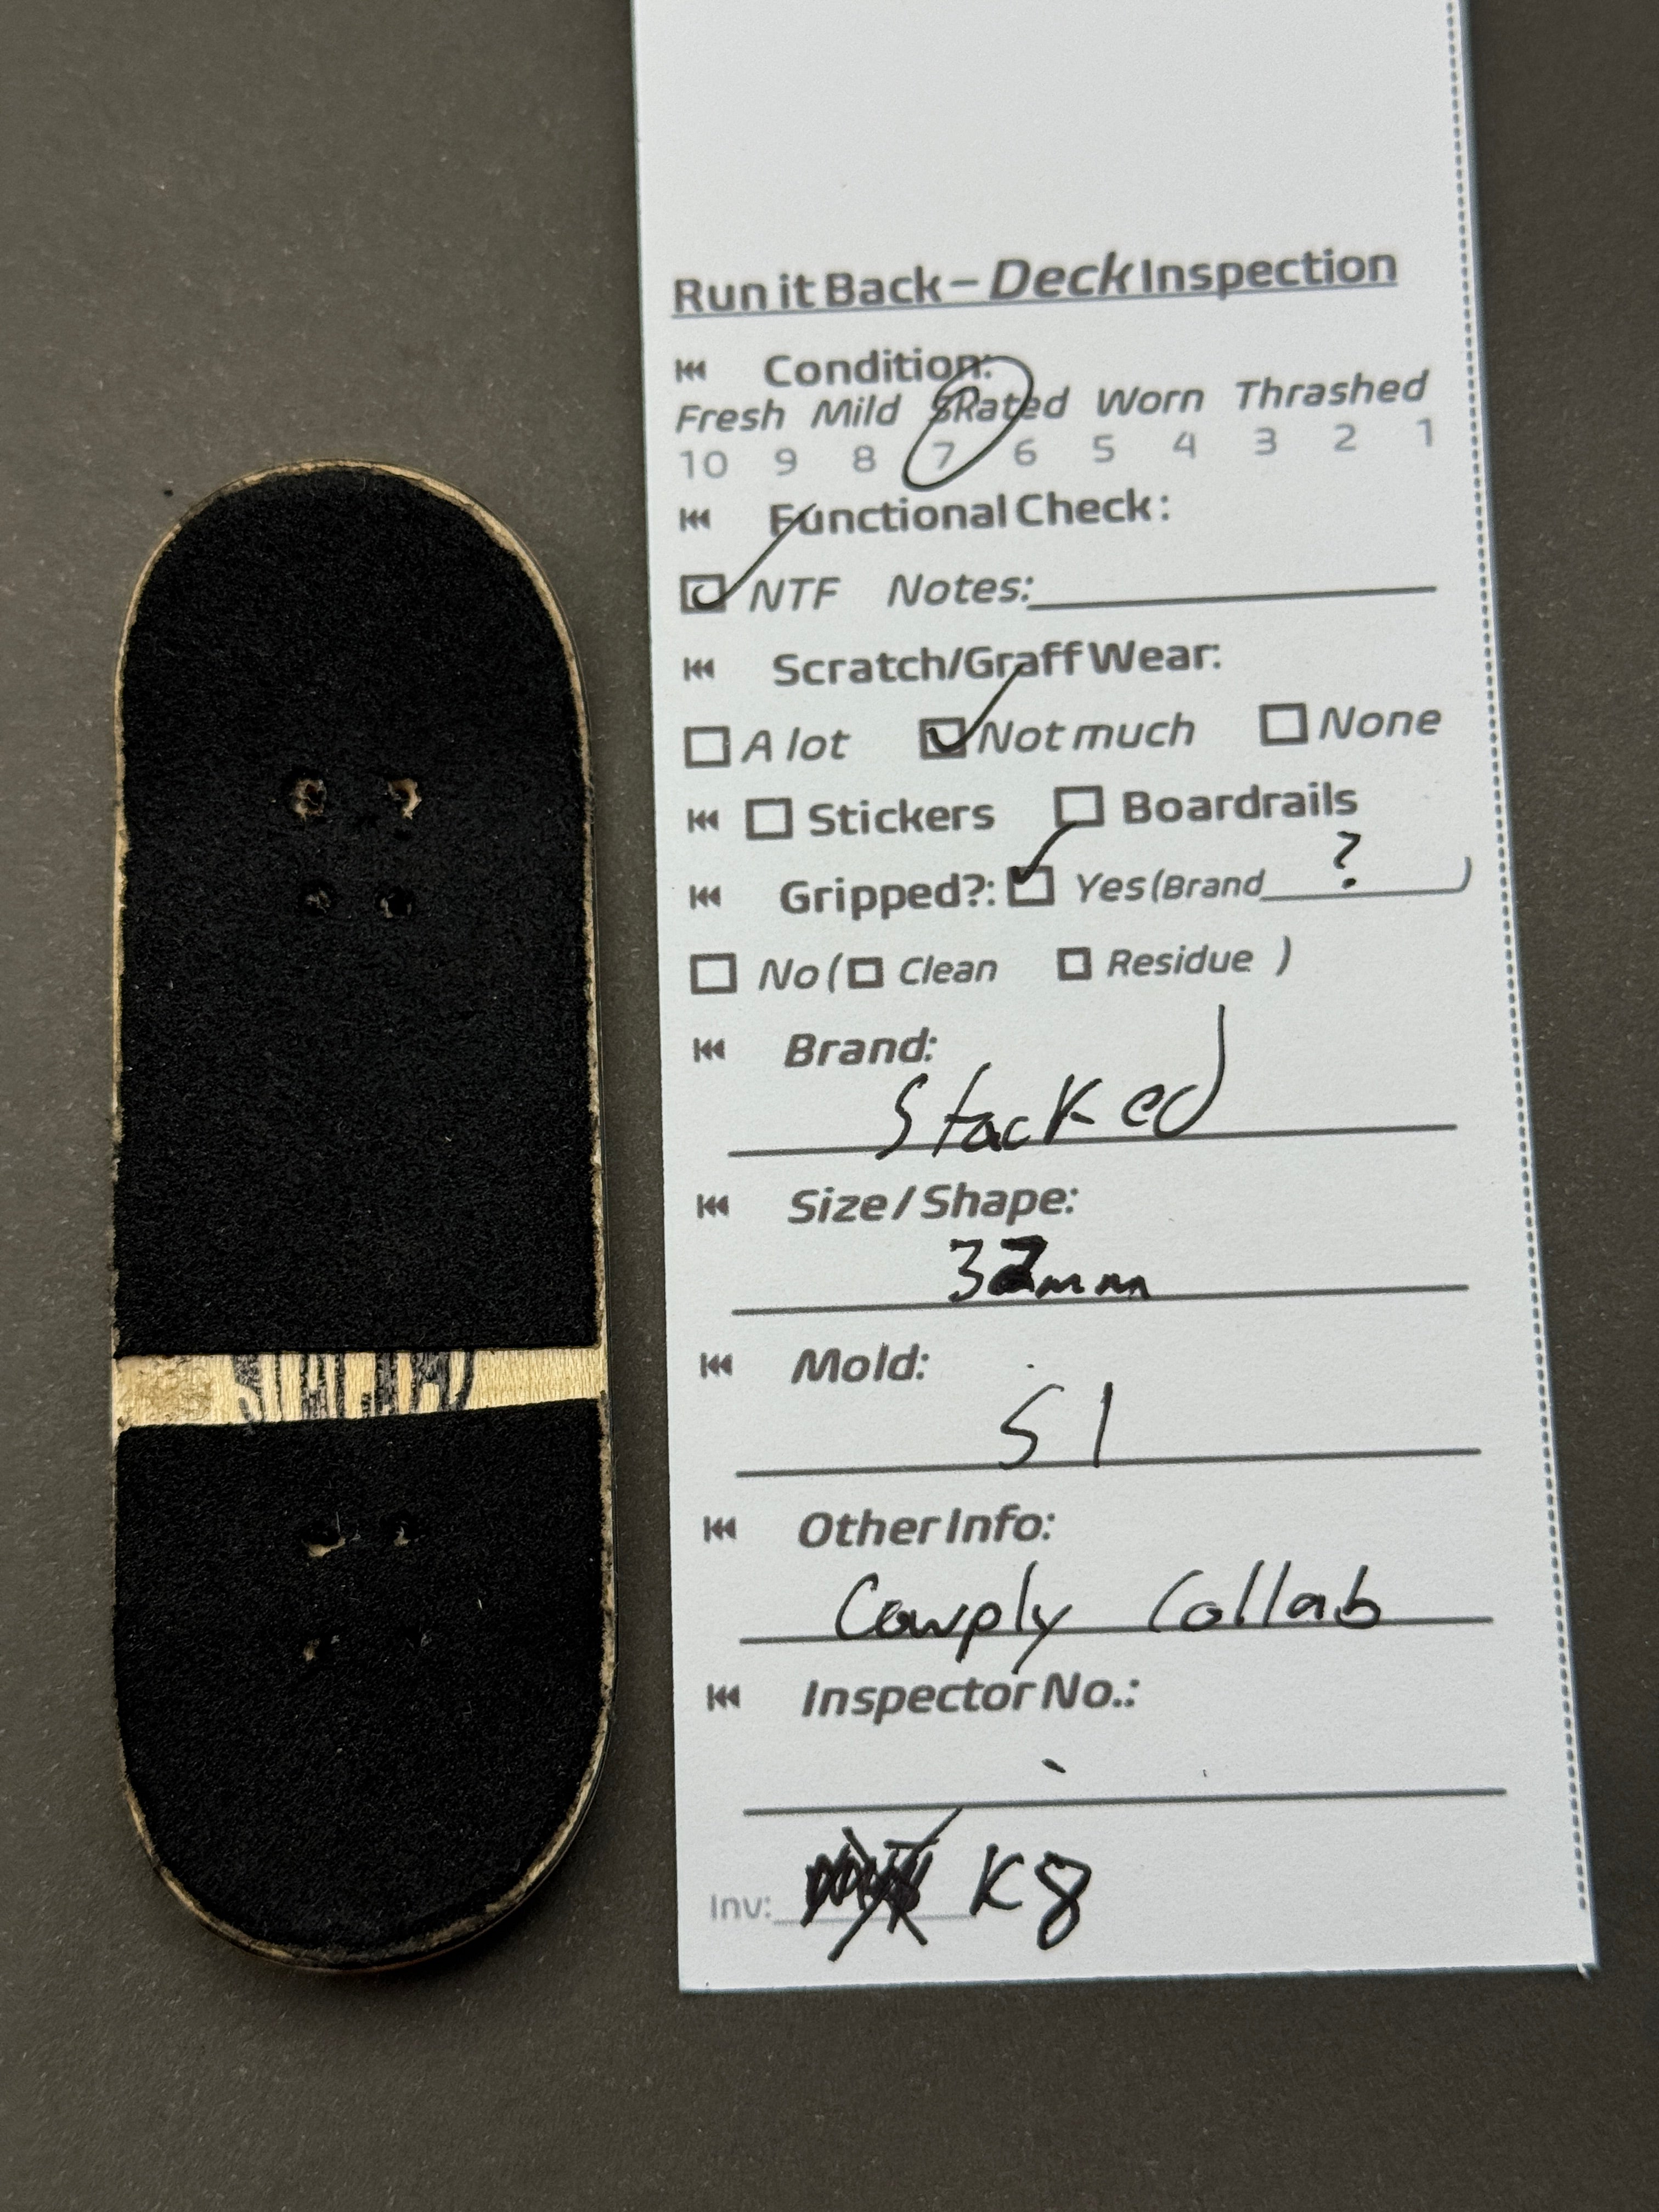 Run it Back – Deck Inspection
Condition:
Fresh Mild Skated Worn Thrashed
10 9 8 7 6 5 4 3 2 1
Functional Check:
NTF Notes:
Scratch/Graff Wear:
A lot Not much None
Stickers Boardrails
Gripped?: Yes (Brand ? )
No ( Clean Residue )
Brand:
Stacked
Size / Shape:
32mm
Mold:
S1
Other Info:
Cowply Collab
Inspector No.:
Inv: K8